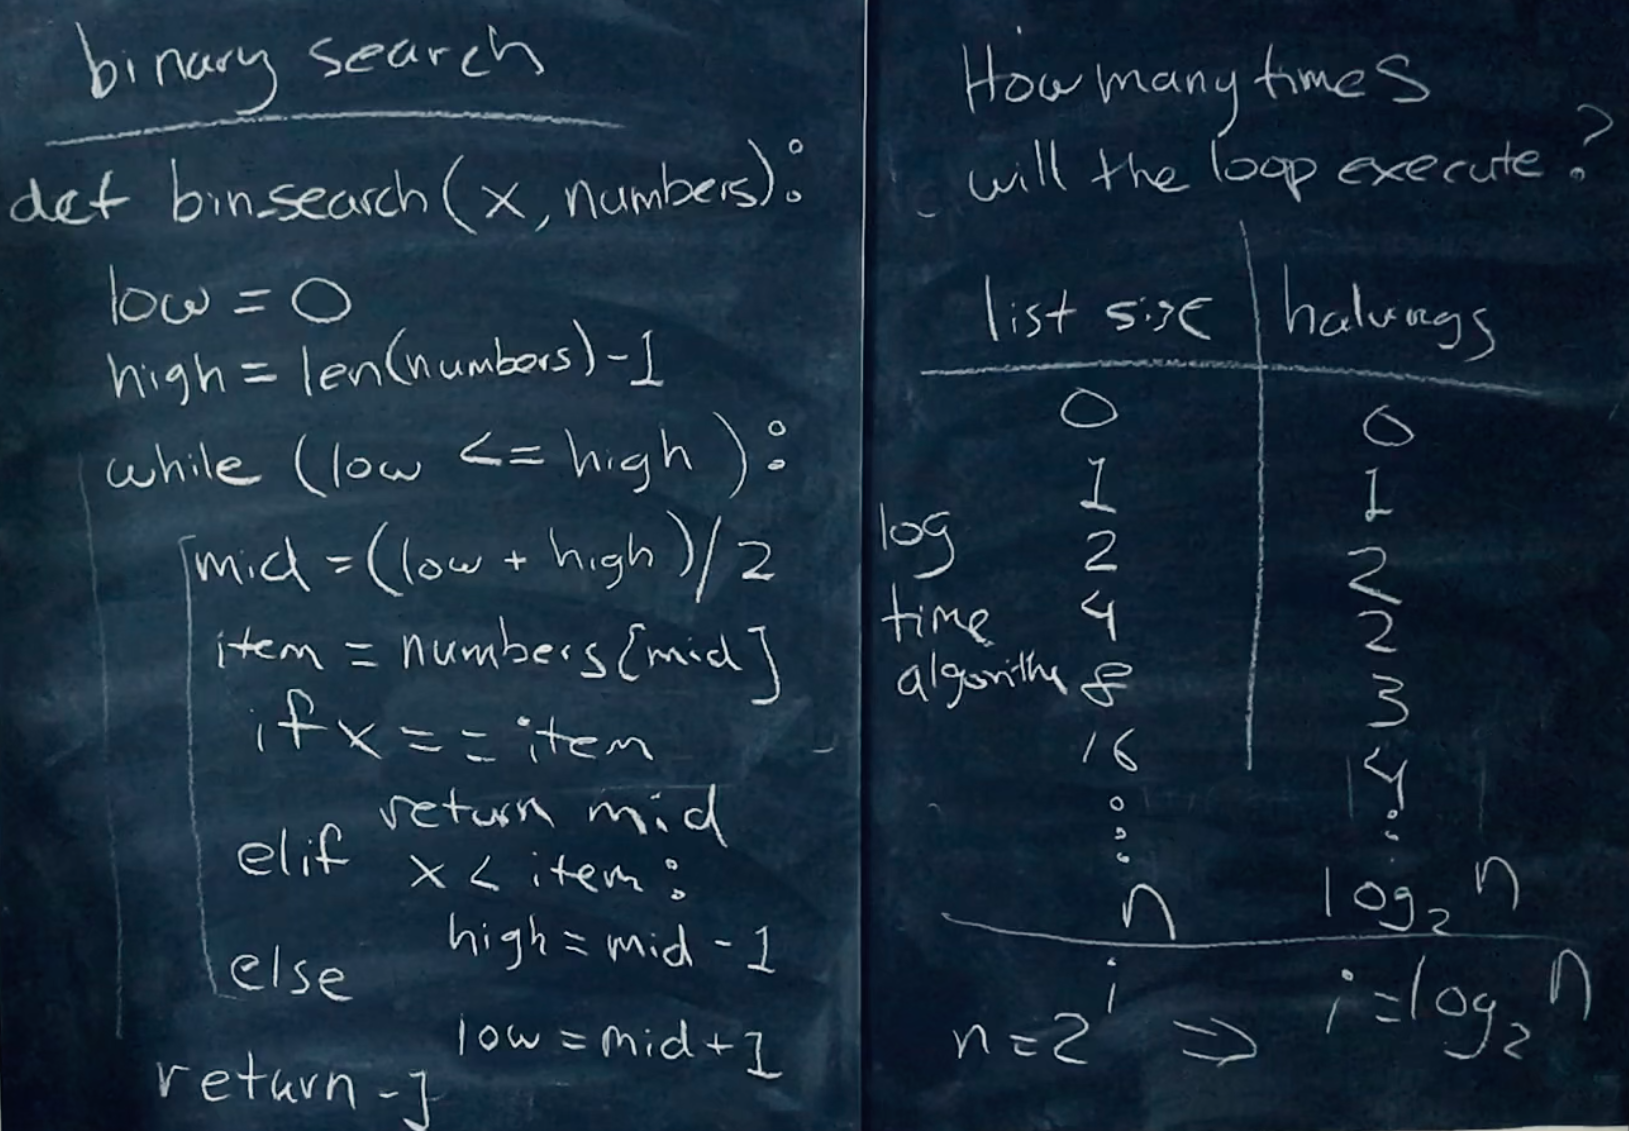 binary search
def bin_search(x, numbers):
low = 0
high = len(numbers)-1
while (low <= high):
mid = (low + high)/2
item = numbers[mid]
if x == item
return mid
elif x < item:
high = mid - 1
else
low = mid + 1
return -1
How many times
will the loop execute?
list size | halvings
0 0
1 1
2 2
4 2
8 3
16 4
n log₂ n
n = 2ⁱ ⇒ i = log₂ n
log
time
algorithm